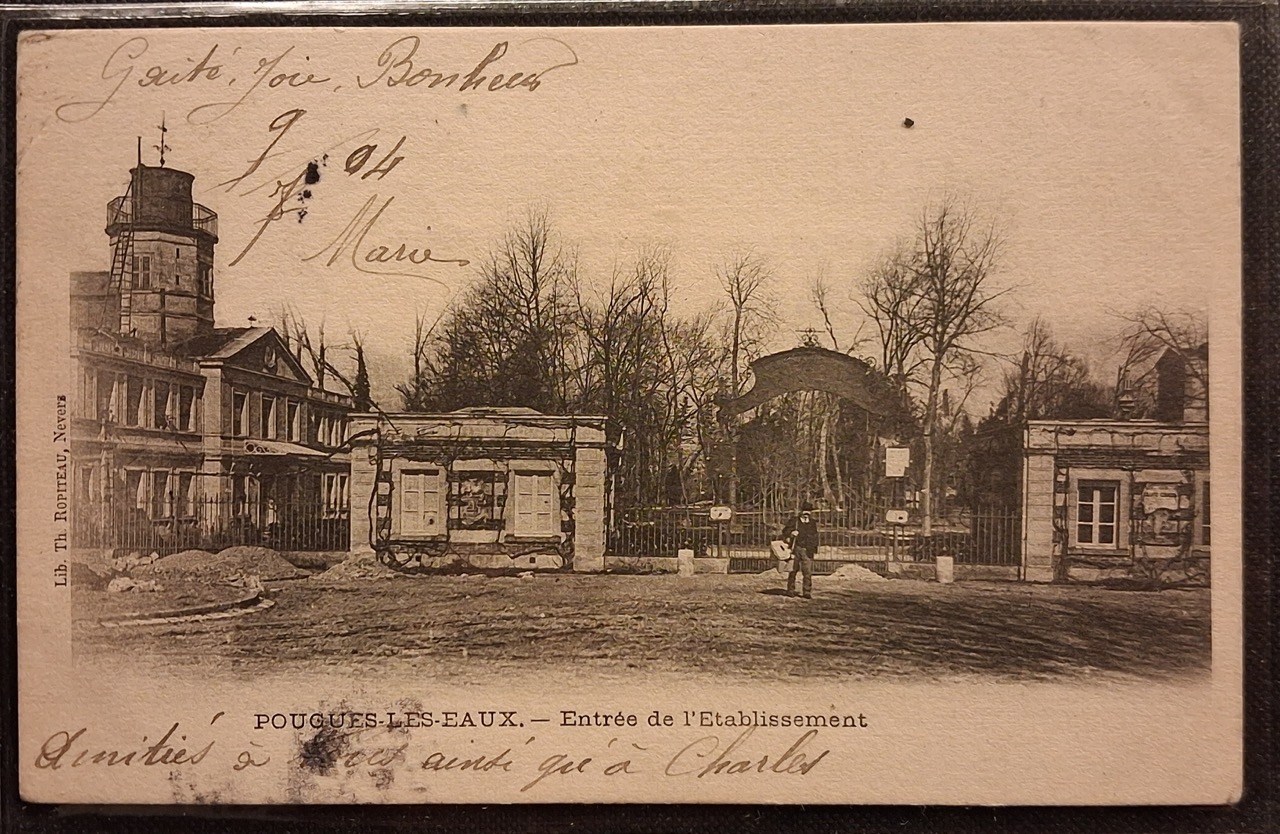 Gaité, Joie, Bonheur
9 04
Marie
Lib. Th. Ropiteau, Nevers
POUGUES-LES-EAUX. — Entrée de l'Etablissement
Amitiés à ainsi qu'à Charles